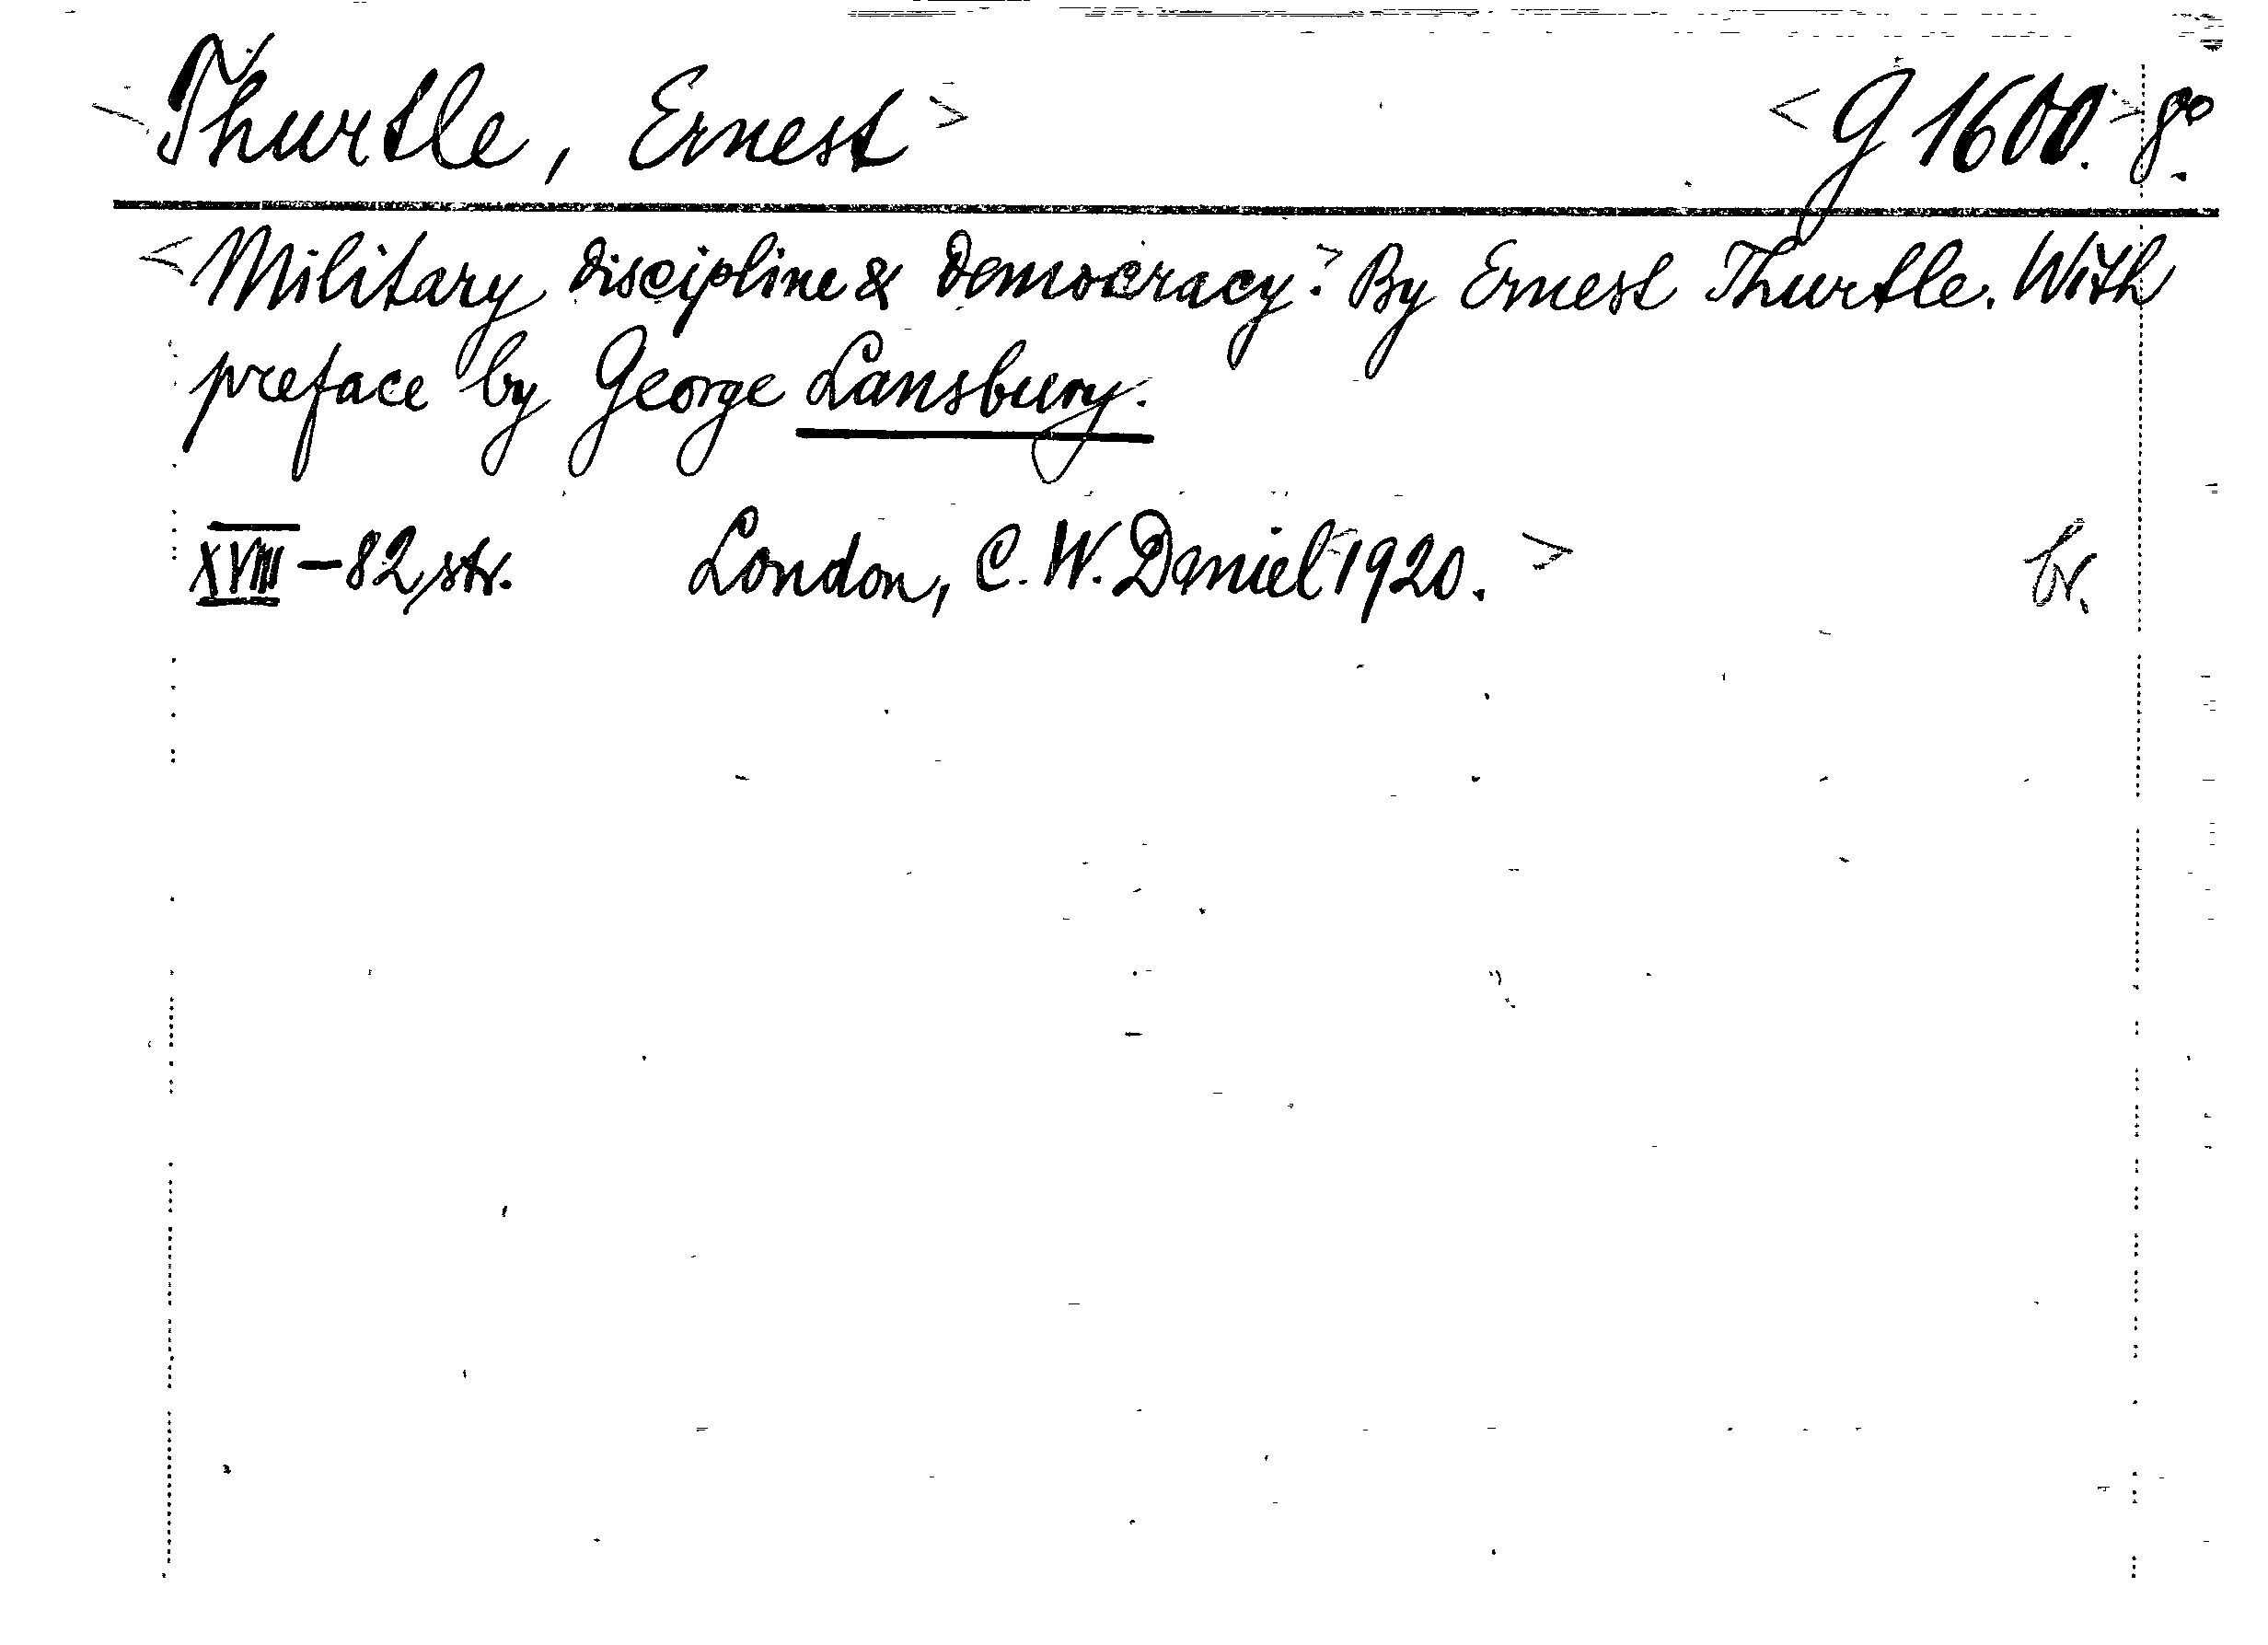 <Thurtle, Ernest> <G 1600.> 8°.
<Military discipline & Democracy.> By Ernest Thurtle. With
preface by George Lansbury.
XVIII-82 str. London, C. W. Daniel 1920.> br.